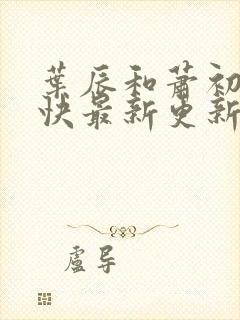 葉辰和蕭初
快最新更新
盧导